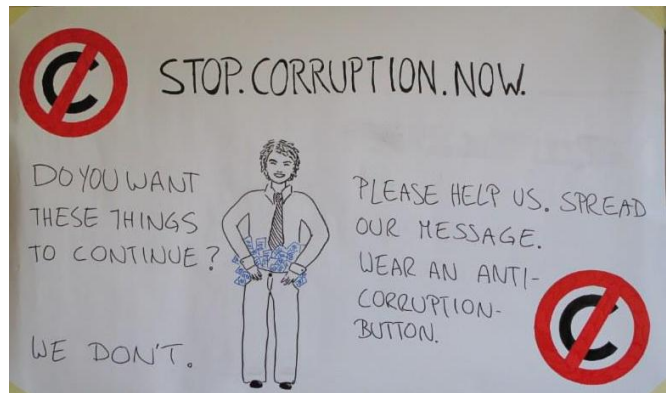 STOP.CORRUPTION.NOW.
DO YOU WANT
THESE THINGS
TO CONTINUE?
WE DON'T.
PLEASE HELP US. SPREAD
OUR MESSAGE.
WEAR AN ANTI-
CORRUPTION-
BUTTON.
C
C